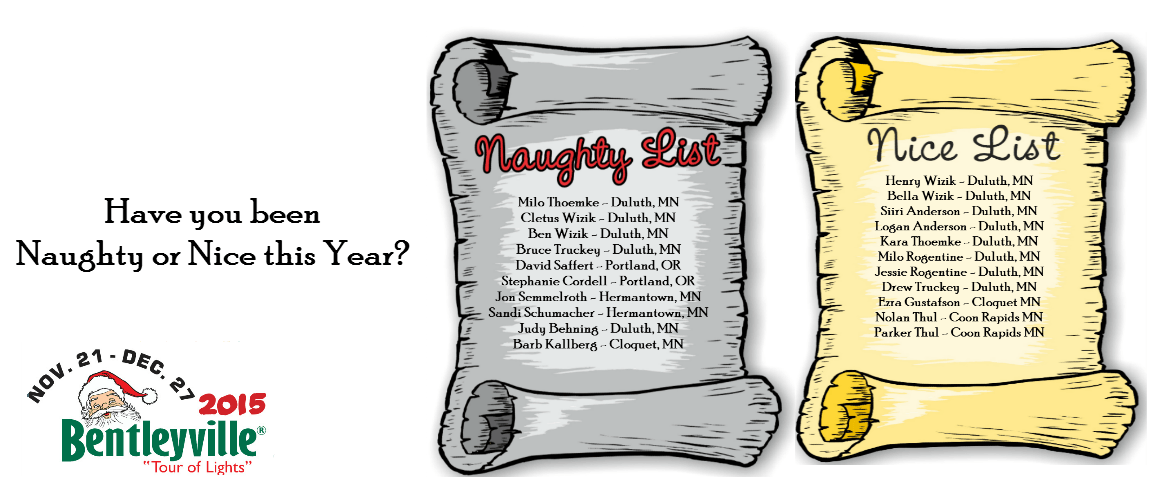 Have you been
Naughty or Nice this Year?
NOV. 21 - DEC. 27
2015
Bentleyville®
"Tour of Lights"
Naughty List
Milo Thoemke - Duluth, MN
Cletus Wizik - Duluth, MN
Ben Wizik - Duluth, MN
Bruce Truckey - Duluth, MN
David Saffert - Portland, OR
Stephanie Cordell - Portland, OR
Jon Semmelroth - Hermantown, MN
Sandi Schumacher - Hermantown, MN
Judy Behning - Duluth, MN
Barb Kallberg - Cloquet, MN
Nice List
Henry Wizik - Duluth, MN
Bella Wizik - Duluth, MN
Siiri Anderson - Duluth, MN
Logan Anderson - Duluth, MN
Kara Thoemke - Duluth, MN
Milo Rogentine - Duluth, MN
Jessie Rogentine - Duluth, MN
Drew Truckey - Duluth, MN
Ezra Gustafson - Cloquet MN
Nolan Thul - Coon Rapids MN
Parker Thul - Coon Rapids MN